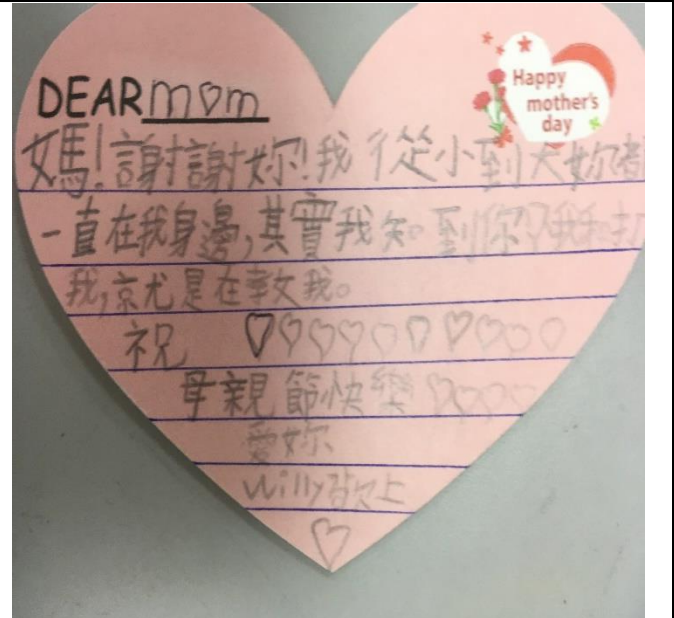 DEAR mom
Happy
mother's
day
媽!謝謝妳!我從小到大妳都
一直在我身邊,其實我知到你罵我和打
我,就是在教我。
祝 ♡♡♡♡♡♡♡♡♡♡
母親節快樂♡♡♡♡
愛妳
Willy敬上
♡